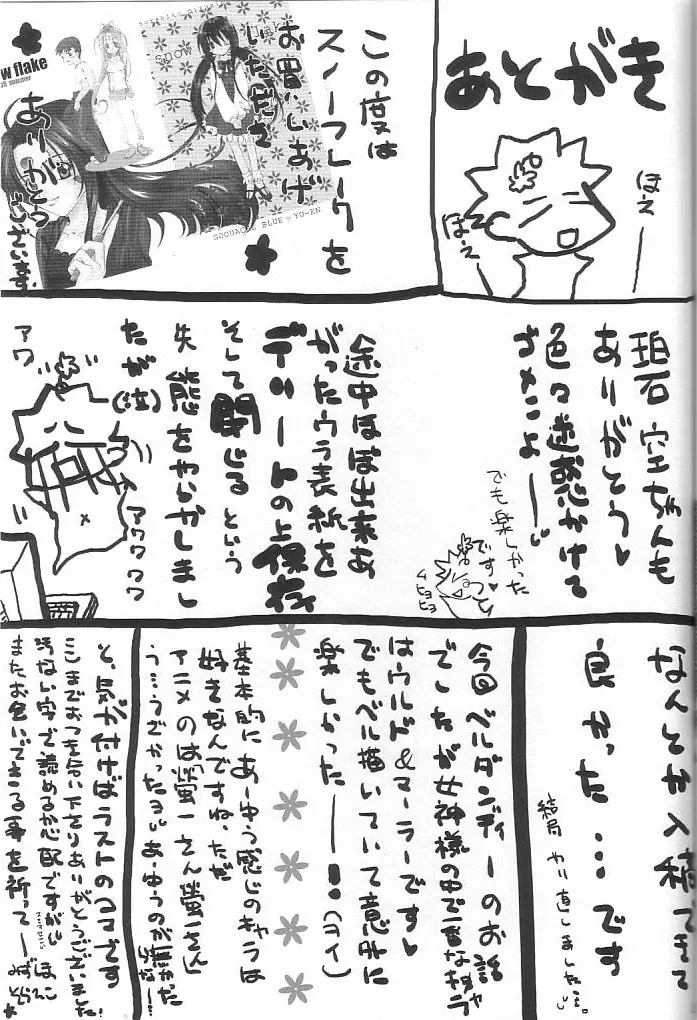 あとがき
ほえー
ほえー
この度は
スノーフレークを
お買いあげ
いただき
ありがとう
ございます。
w flake
GOOUACHE BLUE YU-EN
珀石 空ちゃんも
ありがとう♥
色々迷惑かけて
ゴメンよー
でも楽しかった
ですっ
ムヒョヒョ
途中ほぼ出来あ
がったウラ表紙を
デリートの上保存
そして閉じる という
失態をやらかしまし
たが(泣)
アワ
アワワワワ
なんとか入稿できて
良かった…です
結局 やり直しました…
今回ベルダンディーのお話
でしたが女神様の中で一番なキャラ
はウルド&マーラーです♥
でもベル描いていて意外に
楽しかったーー!
基本的にあーゆう感じのキャラは
好きなんですね。ただ
アニメのは「螢一さん螢一さん」
と、気が付けばラストのコマです
ここまでおつき合い下さりありがとうございました!
汚ない字で読めるか心配ですが
またお会いできる事を祈ってー